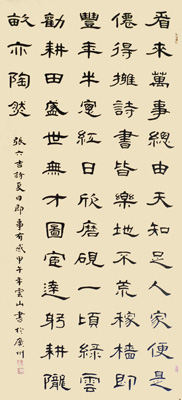 看來萬事總由天知足人家便是
僊得擁詩書皆樂地不荒稼穡即
豐年半窗紅日欣磨硯一頃綠雲
勸耕田盛世無才圖宦達躬耕隴
畝亦陶然
張六吉詩夏日即事有感甲子年雲山書於廣州